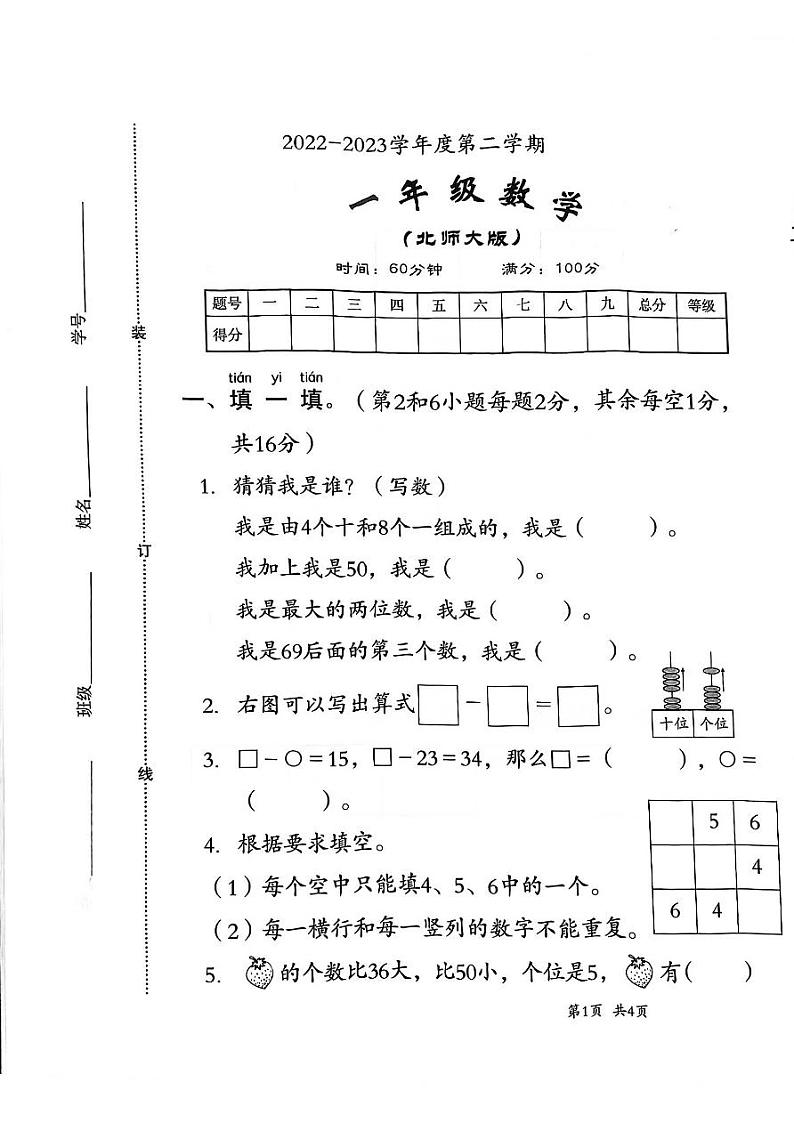 2022-2023学年度第二学期
一年级数学
（北师大版）
时间：60分钟 满分：100分
题号 一 二 三 四 五 六 七 八 九 总分 等级
得分
tián yi tián
一、填一填。（第2和6小题每题2分，其余每空1分，
共16分）
1. 猜猜我是谁？（写数）
我是由4个十和8个一组成的，我是（ ）。
我加上我是50，我是（ ）。
我是最大的两位数，我是（ ）。
我是69后面的第三个数，我是（ ）。
2. 右图可以写出算式□－□＝□。
十位 个位
3. □－○＝15，□－23＝34，那么□＝（ ），○＝
（ ）。
4. 根据要求填空。
（1）每个空中只能填4、5、6中的一个。
（2）每一横行和每一竖列的数字不能重复。
5 6
4
6 4
5. 的个数比36大，比50小，个位是5，有( )
第1页 共4页
学号
姓名
班级
装
订
线